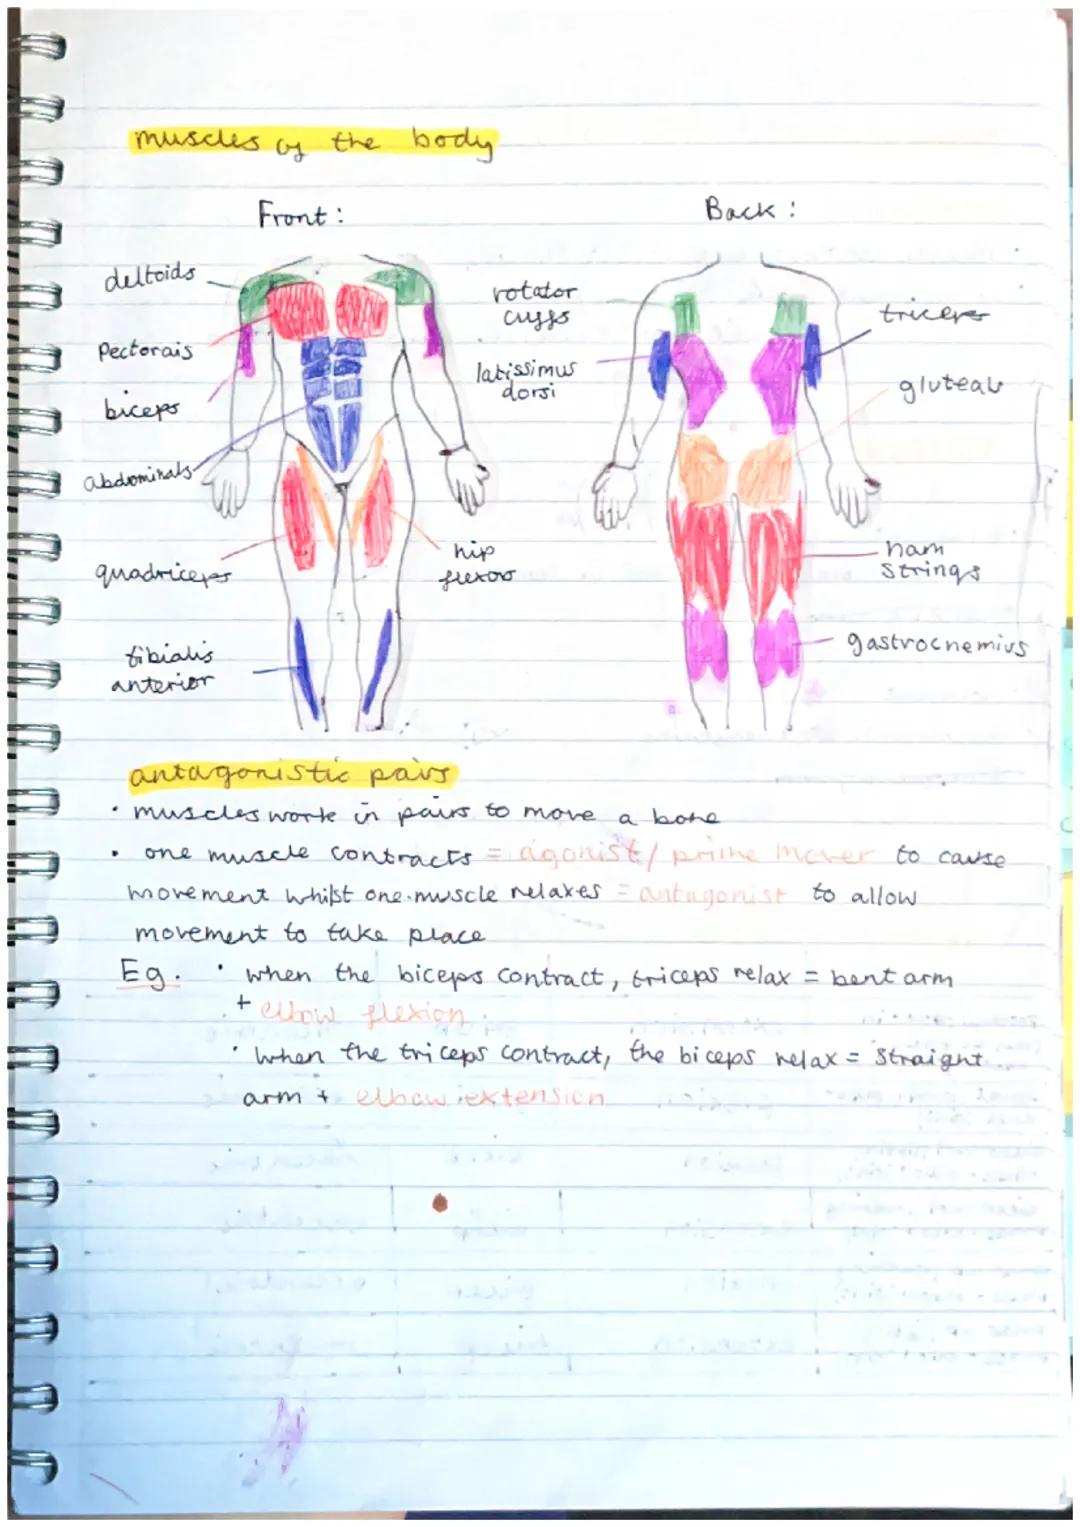 muscles of the body
Front:
Back:
deltoids
Pectorals
biceps
abdominals
quadriceps
tibialis
anterior
hip
flexors
rotator
cuffs
latissimus
dorsi
triceps
gluteals
ham
strings
gastrocnemius
antagonistic pairs
• muscles work in pairs to move a bone
• one muscle contracts = agonist / prime mover to cause
movement whilst one muscle relaxes = antagonist to allow
movement to take place
Eg. • when the biceps contract, triceps relax = bent arm
+ elbow flexion
• when the triceps contract, the biceps relax = straight
arm + elbow extension